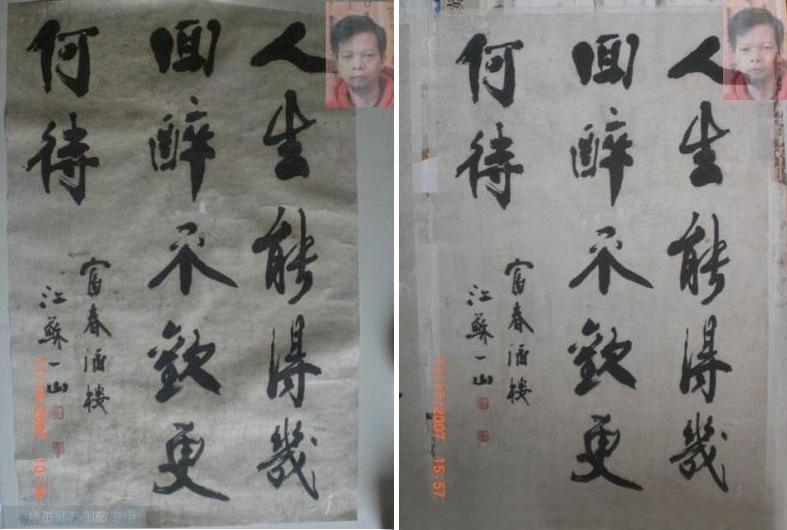 人生能得幾
回醉不歡更
何待
富春酒楼
江蘇一山
人生能得幾
回醉不歡更
何待
富春酒楼
江蘇一山
11/17/2007 15:57